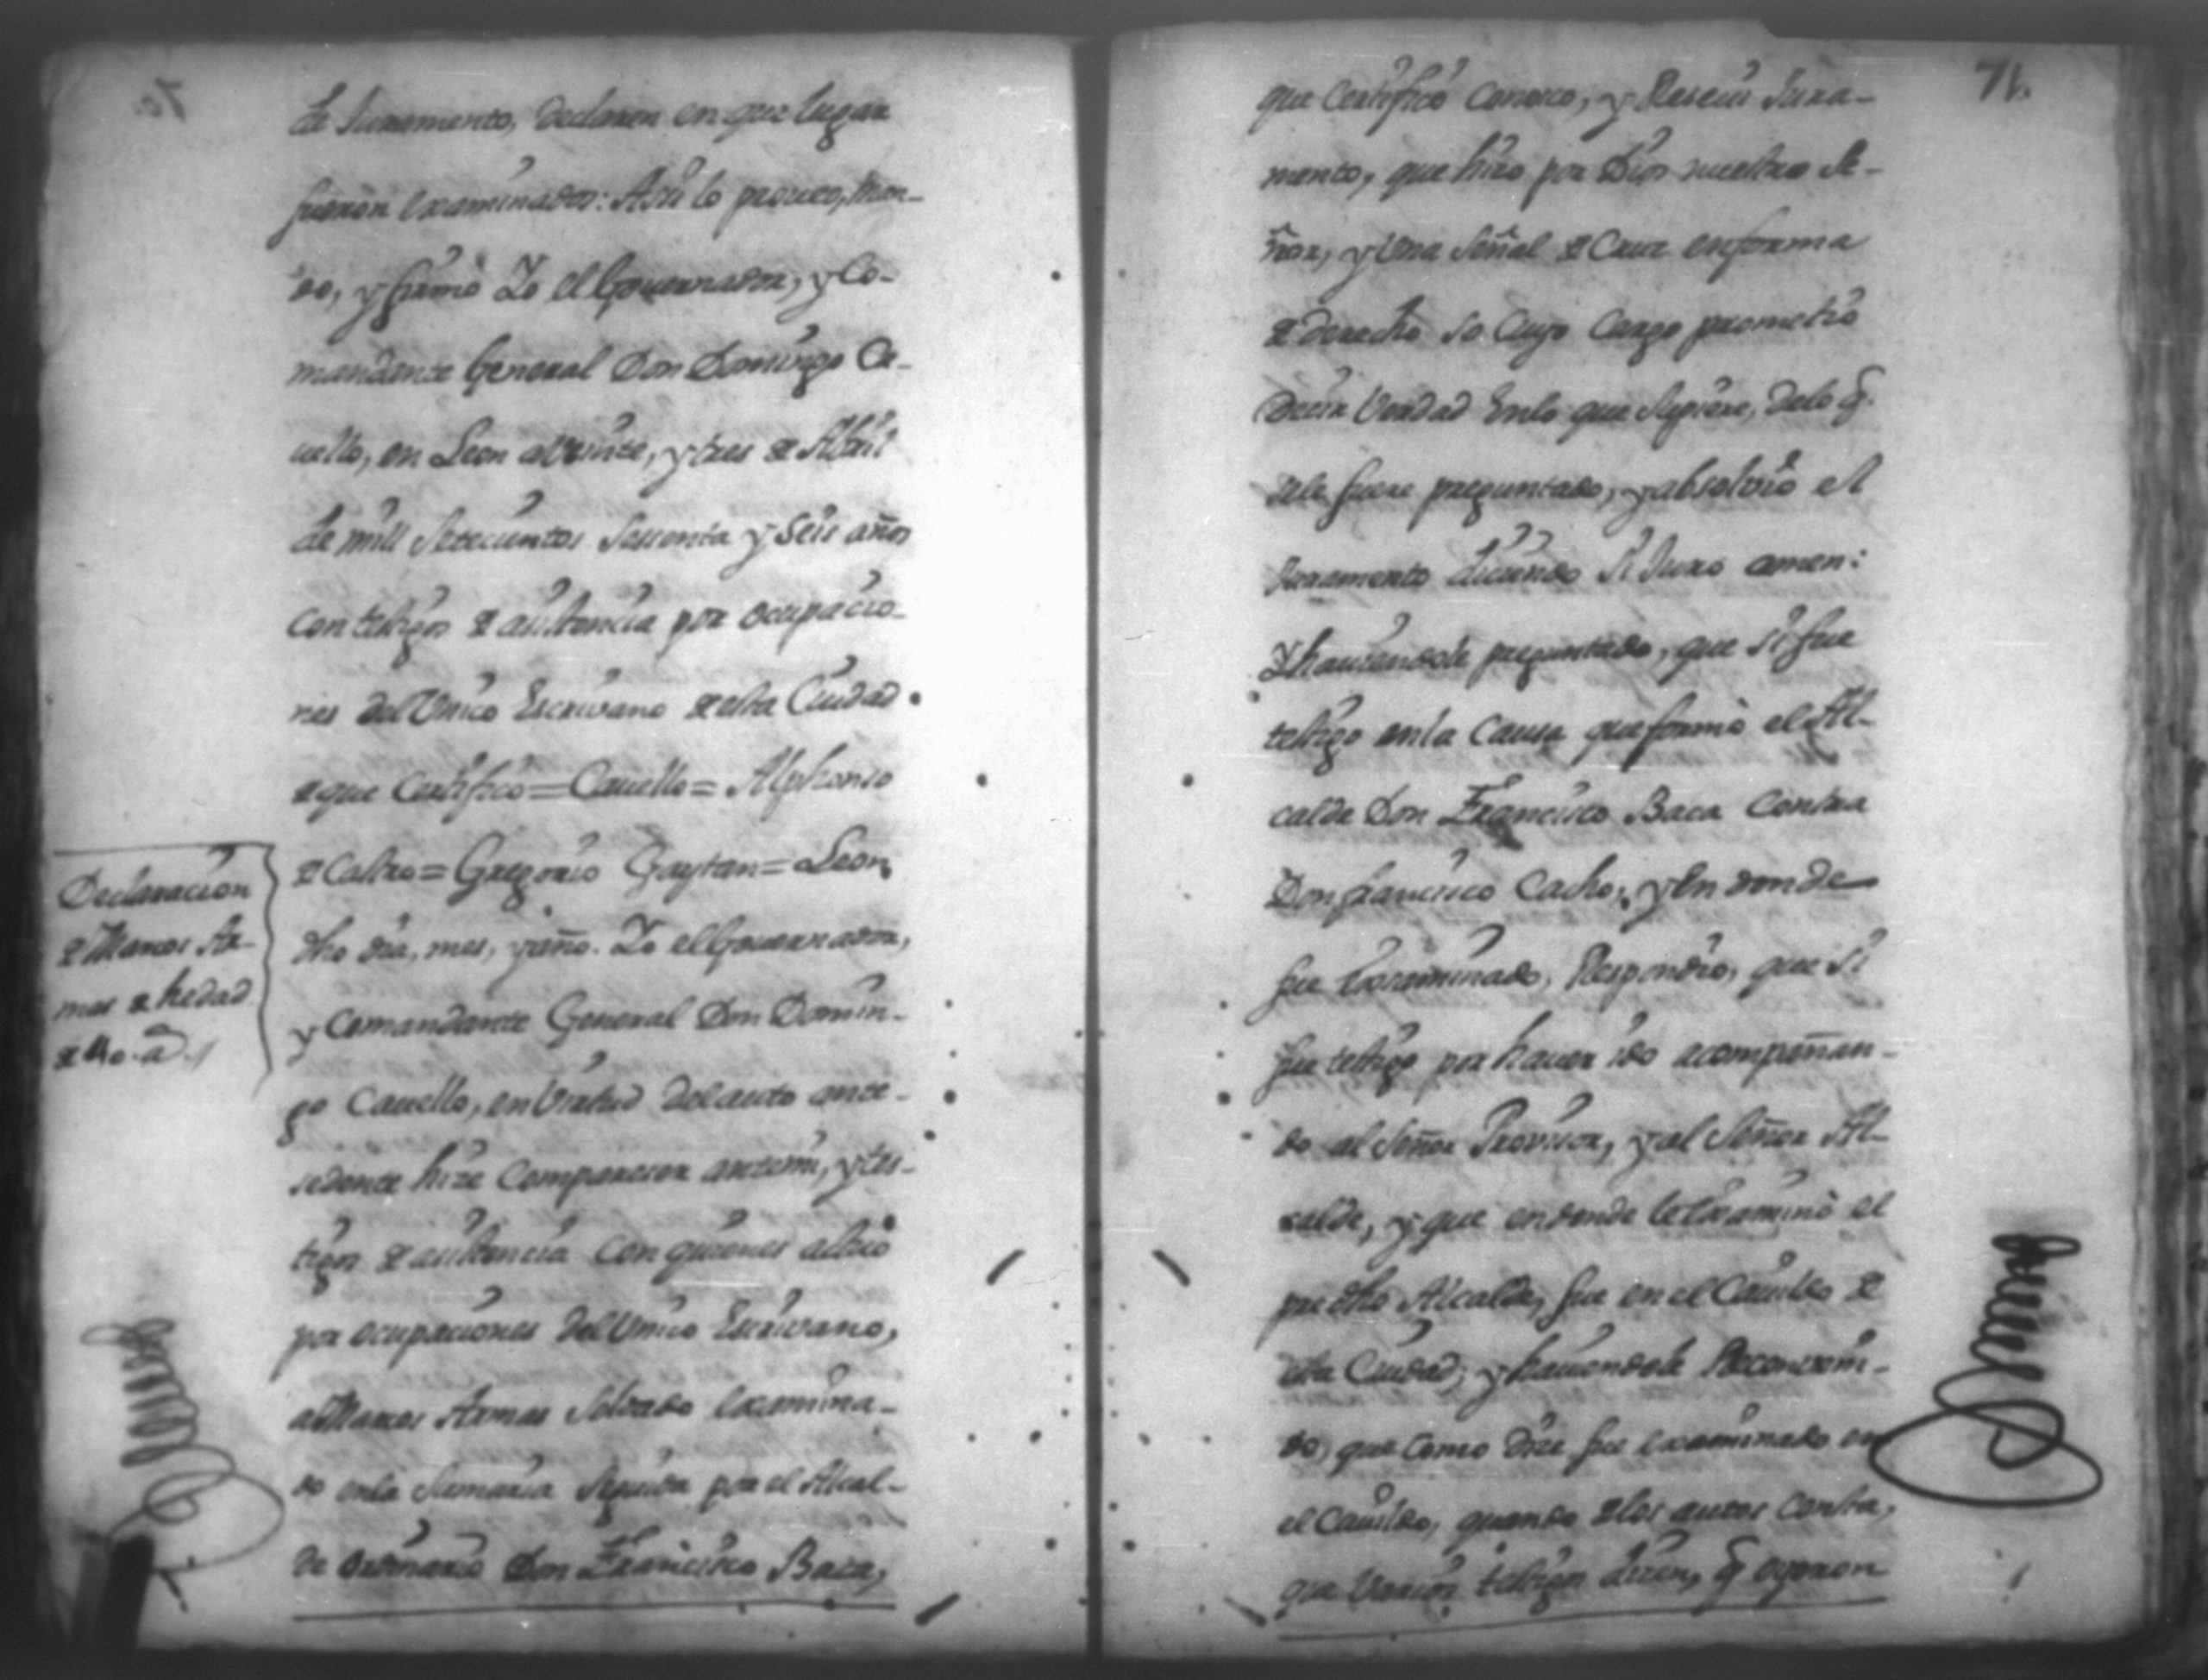 de Juramento, declaren en que lugar
fueron examinados: Asi lo proueo, man-
do, y firmo Yo el Gouernador, y Co-
mandante General Don Domingo Ca-
uello, en Leon a Veinte, y tres de Abril
de mill Setecientos Sessenta y Seis años
con testigos de asistencia por ocupacio-
nes del Unico Escrivano de esta Ciudad.
de que Certifico = Cauello = Alphonso
de Castro = Gregorio Gaytan = Leon,
dho dia, mes, y año. Yo el Gouernador,
y Comandante General Don Domin-
go Cauello, en Virtud del auto ante-
sedente hize Comparecer ante mi, y tes-
tigos de asistencia con quienes actuo
por ocupaciones del Unico Escrivano,
a Marcos Armas Soldado examina-
do en la Sumaria Seguida por el Alcal-
de ordinario Don Francisco Baca,
Declaracion
de Marcos Ar-
mas de hedad
de 40. a.s
71.
que Certificò Conosco, y Reseui Jura-
mento, que hizo por Dios nuestro Se-
ñor, y Una Señal de Cruz en forma
de derecho so Cuyo Cargo prometio
Decir Verdad En lo que Supiere, de lo q.
se le fuere preguntado, y absoluio el
Juramento diciendo Si Juro amen:
Y hauiendole preguntado, que si fue
testigo en la Causa que formò el Al-
calde Don Francisco Baca Contra
Don francisco Cacho, y en donde
fue Examinado, Respondio, que Si
fue testigo por hauer ido acompañan-
do al Señor Provisor, y al Señor Al-
calde, y que en donde le Examinò el
pre dho Alcalde, fue en el Cauildo de
esta Ciudad; y hauiendole Reconveni-
do, que como dize fue examinado en
el Cauildo, quando de los autos Consta,
que Varios testigos dizen, q oyeron